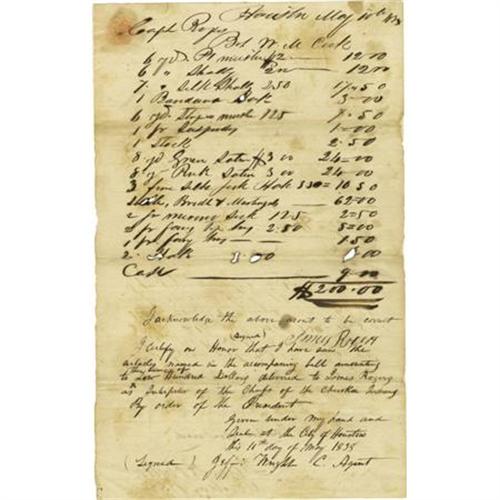 Houston May 10th 1838
Capt Rogers
Bot W. M. Cook
6 yds Pt muslin $2 — 12.00
6 " Shally 2.00 — 12.00
7 " Silk Shally 2.50 17.50
1 Bandana 3.00
6 yds muslin 1.25 7.50
1 pr Suspenders — 1.00
1 Stock — 2.50
8 yd Green Satin $3.00 24.00
8 yd Pink Satin 3.00 24.00
3 fine Silk Hdk 3.50 = 10.50
Bridle & Martingale — 62.00
2 pr Sock 1.25 — 2.50
2 pr 2.50 5.00
1 pr — 1.50
2 3.00 .00
Cash 9.00
$200.00
I acknowledge the above account to be correct
(Signed) James Rogers
I certify on Honor that I have seen the
articles named in the accompanying bill amounting
to Two Hundred Dollars delivered to James Rogers
as Interpreter of the Chiefs of the Cherokee Indians
By order of the President
Given under my hand and
Seal at the City of Houston
this 10th day of May 1838
(Signed) Wright C. Agent